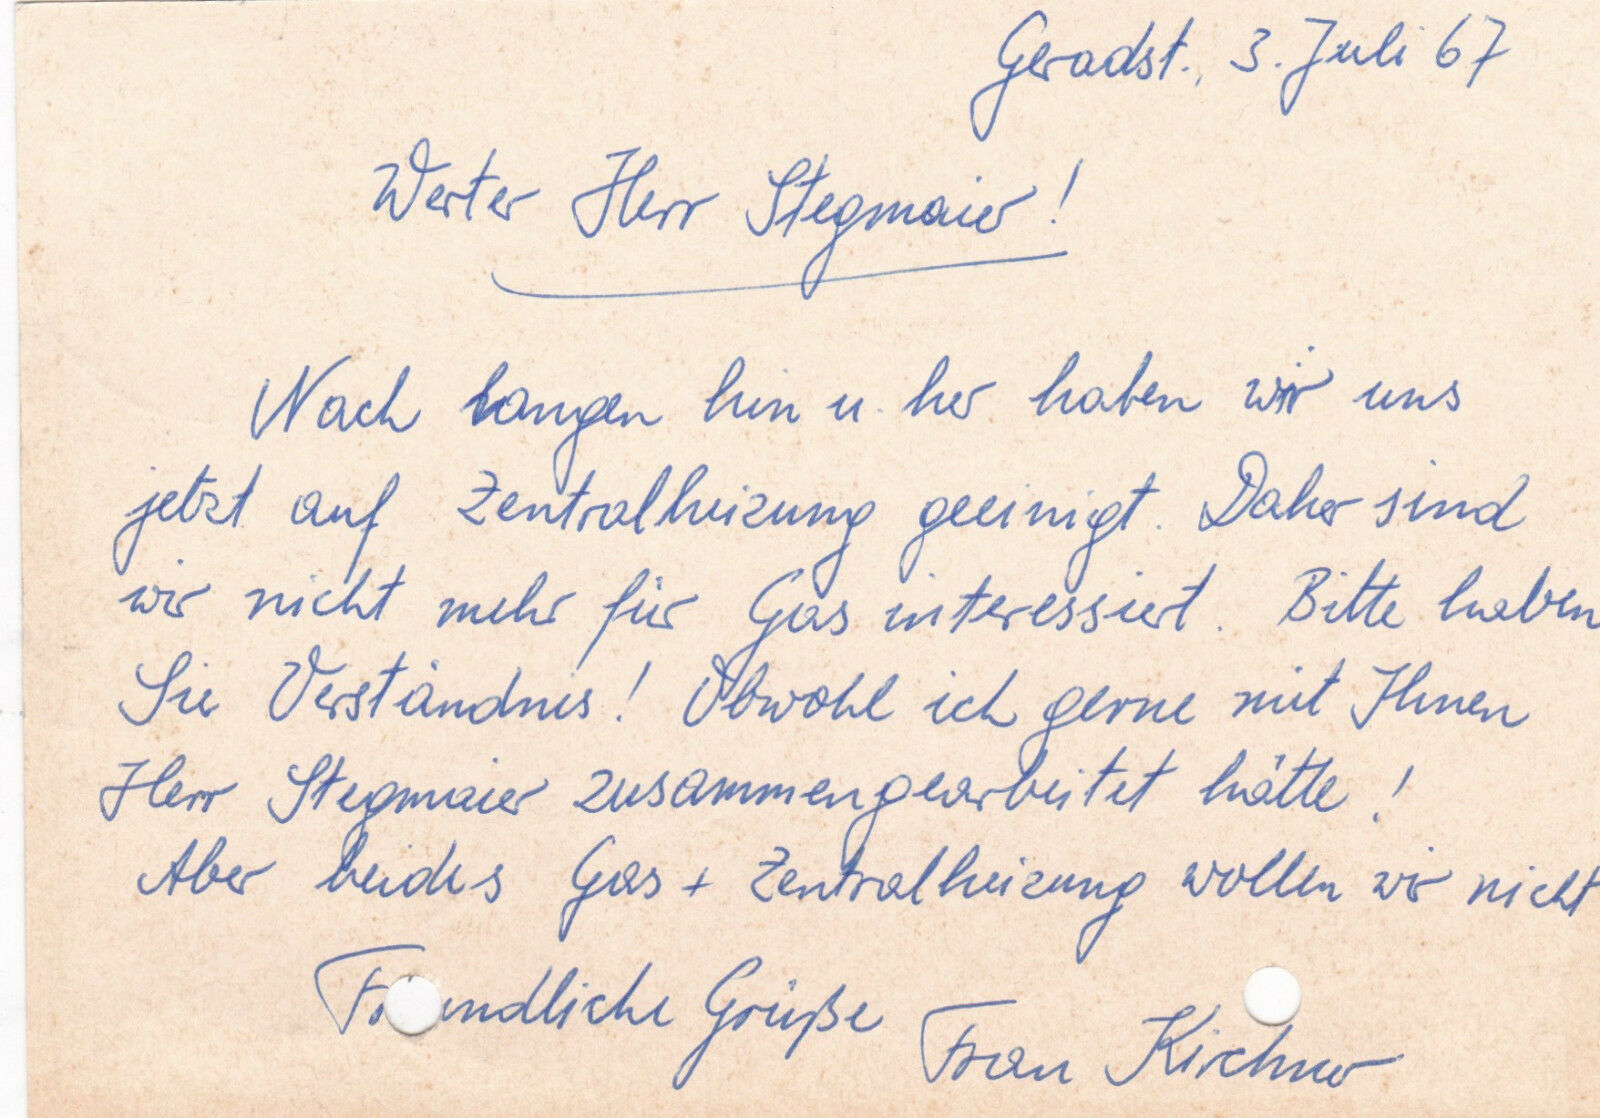 Geradst., 3. Juli 67
Werter Herr Stegmaier!
Nach langen hin u. her haben wir uns
jetzt auf Zentralheizung geeinigt. Daher sind
wir nicht mehr für Gas interessiert. Bitte haben
Sie Verständnis! Obwohl ich gerne mit Ihnen
Herr Stegmaier zusammengearbeitet hätte!
Aber beides Gas + Zentralheizung wollen wir nicht
Freundliche Grüße
Frau Kirchner